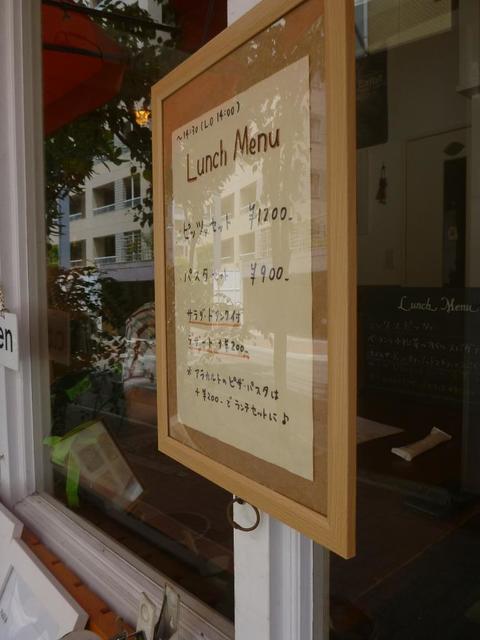 ~14:30 (L.O 14:00)
Lunch Menu
・ピッツァセット ¥1200-
・パスタセット ¥900-
サラダ・ドリンク付
デザート +¥200-
※アラカルトのピザ・パスタは
+¥200-でランチセットに♪
en
Lunch Menu